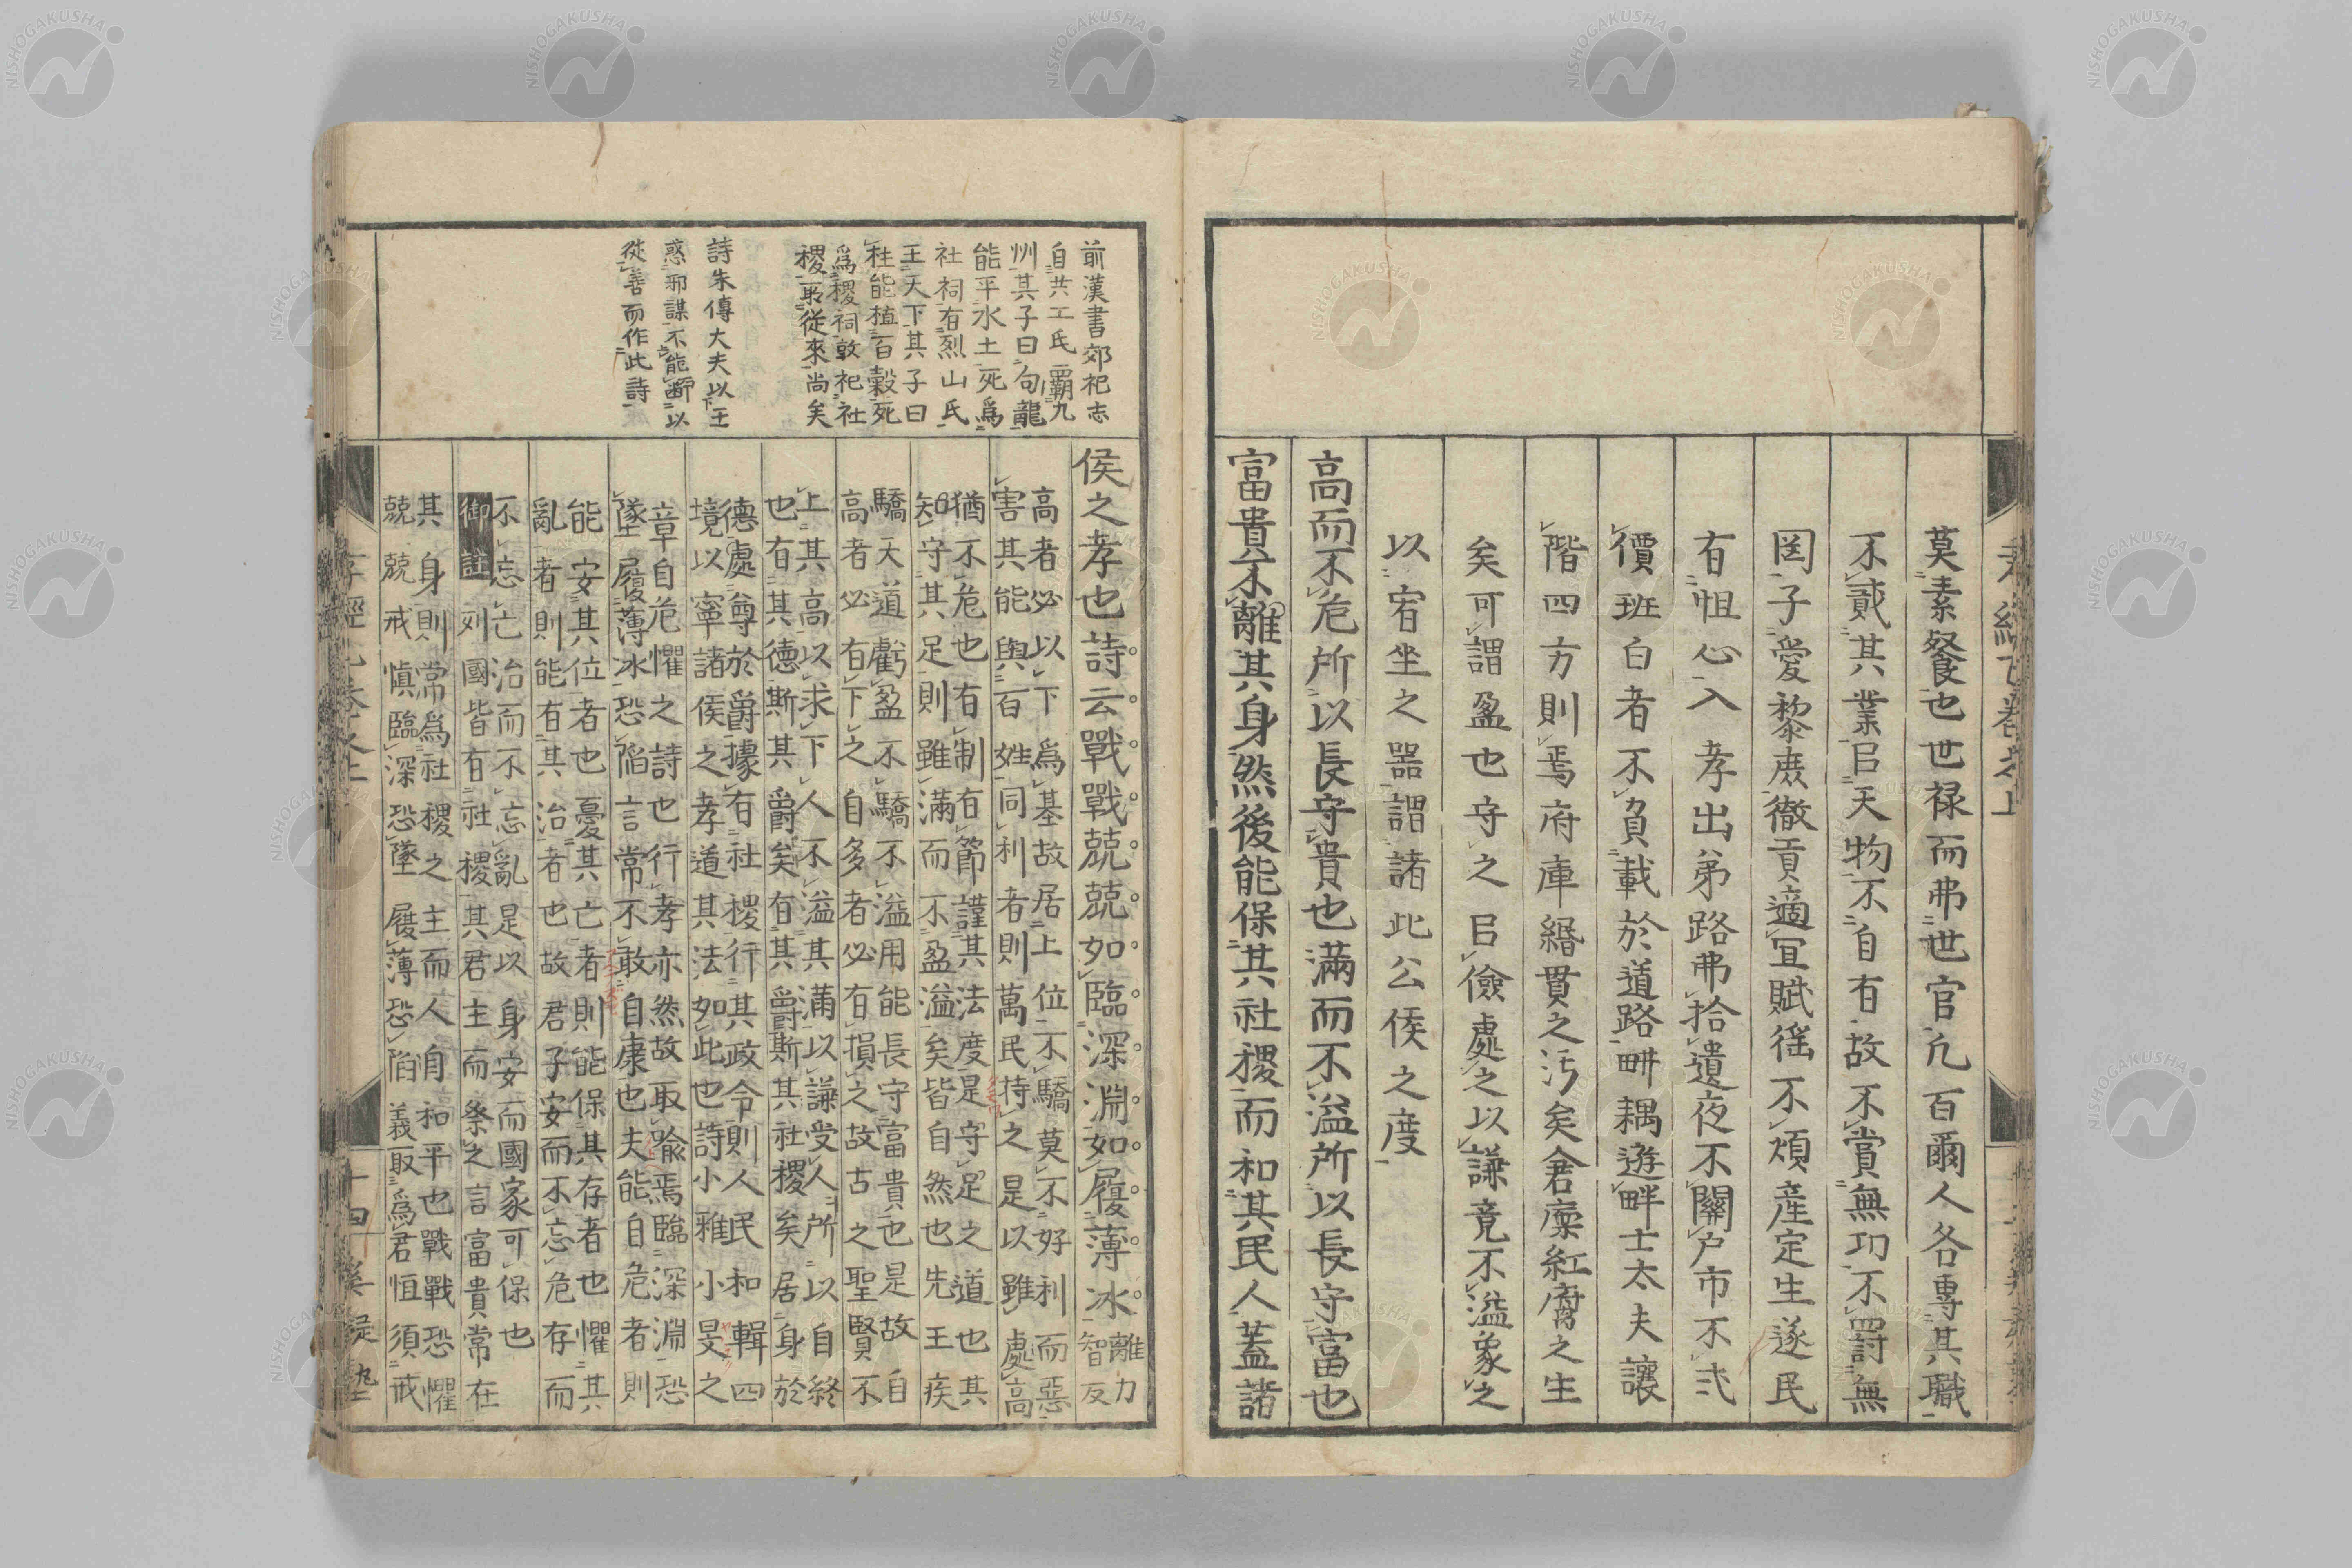 莫素餐也世禄而弗世官凢百爾人各專其職
不貳其業㠯天物不自有故不賞無功不罸無
罔子愛黎庻徹貢適宜賦徭不煩産定生遂民
有怛心入孝出弟路弗拾遺夜不關户市不弍
價班白者不負載於道路畊耦遊畔士太夫讓
階四方則焉府庫緡貫之汚矣倉廩紅腐之生
矣可謂盈也守之㠯儉處之以謙竟不溢象之
以宥坐之噐謂諸此公侯之度
高而不危所以長守貴也滿而不溢所以長守富也
富貴不離其身然後能保其社稷而和其民人蓋諸
前漢書郊祀志
自共工氏霸九
州其子曰句龍
能平水土死爲
社祠有烈山氏
王天下其子曰
柱能植百穀死
爲稷祠敦祀社
稷所從來尚矣
詩朱傳大夫以王
惑邪謀不能斷以
從善而作此詩
侯之孝也詩云戰戰兢兢如臨深淵如履薄冰
離力
智反
高者必以下爲基故居上位不驕莫不好利而惡
害其能與百姓同利者則萬民持之是以雖處高
猶不危也有制有節謹其法度是守足之道也其
知守其足則雖滿而不盈溢矣皆自然也先王疾
驕天道虧盈不驕不溢用能長守富貴也是故自
高者必有下之自多者必有損之故古之聖賢不
上其高以求下人不溢其滿以謙受人所以自終
也有其德斯其爵矣有其爵斯其社稷矣居身於
德處尊於爵據有社稷行其政令則人民和輯四
境以寧諸侯之孝道其法如此也詩小雅小旻之
章自危懼之詩也行孝亦然故取喩焉臨深淵恐
墜履薄冰恐陷言常不敢自康也夫能自危者則
能安其位者也憂其亡者則能保其存者也懼其
亂者則能有其治者也故君子安而不忘危存而
不忘亡治而不忘亂是以身安而國家可保也
御註列國皆有社稷其君主而祭之言富貴常在
其身則常爲社稷之主而人自和平也戰戰恐懼
兢兢戒愼臨深恐墜履薄恐陷義取爲君恒須戒
孝經𠃊卷之上
十四
NISHOGAKUSHA